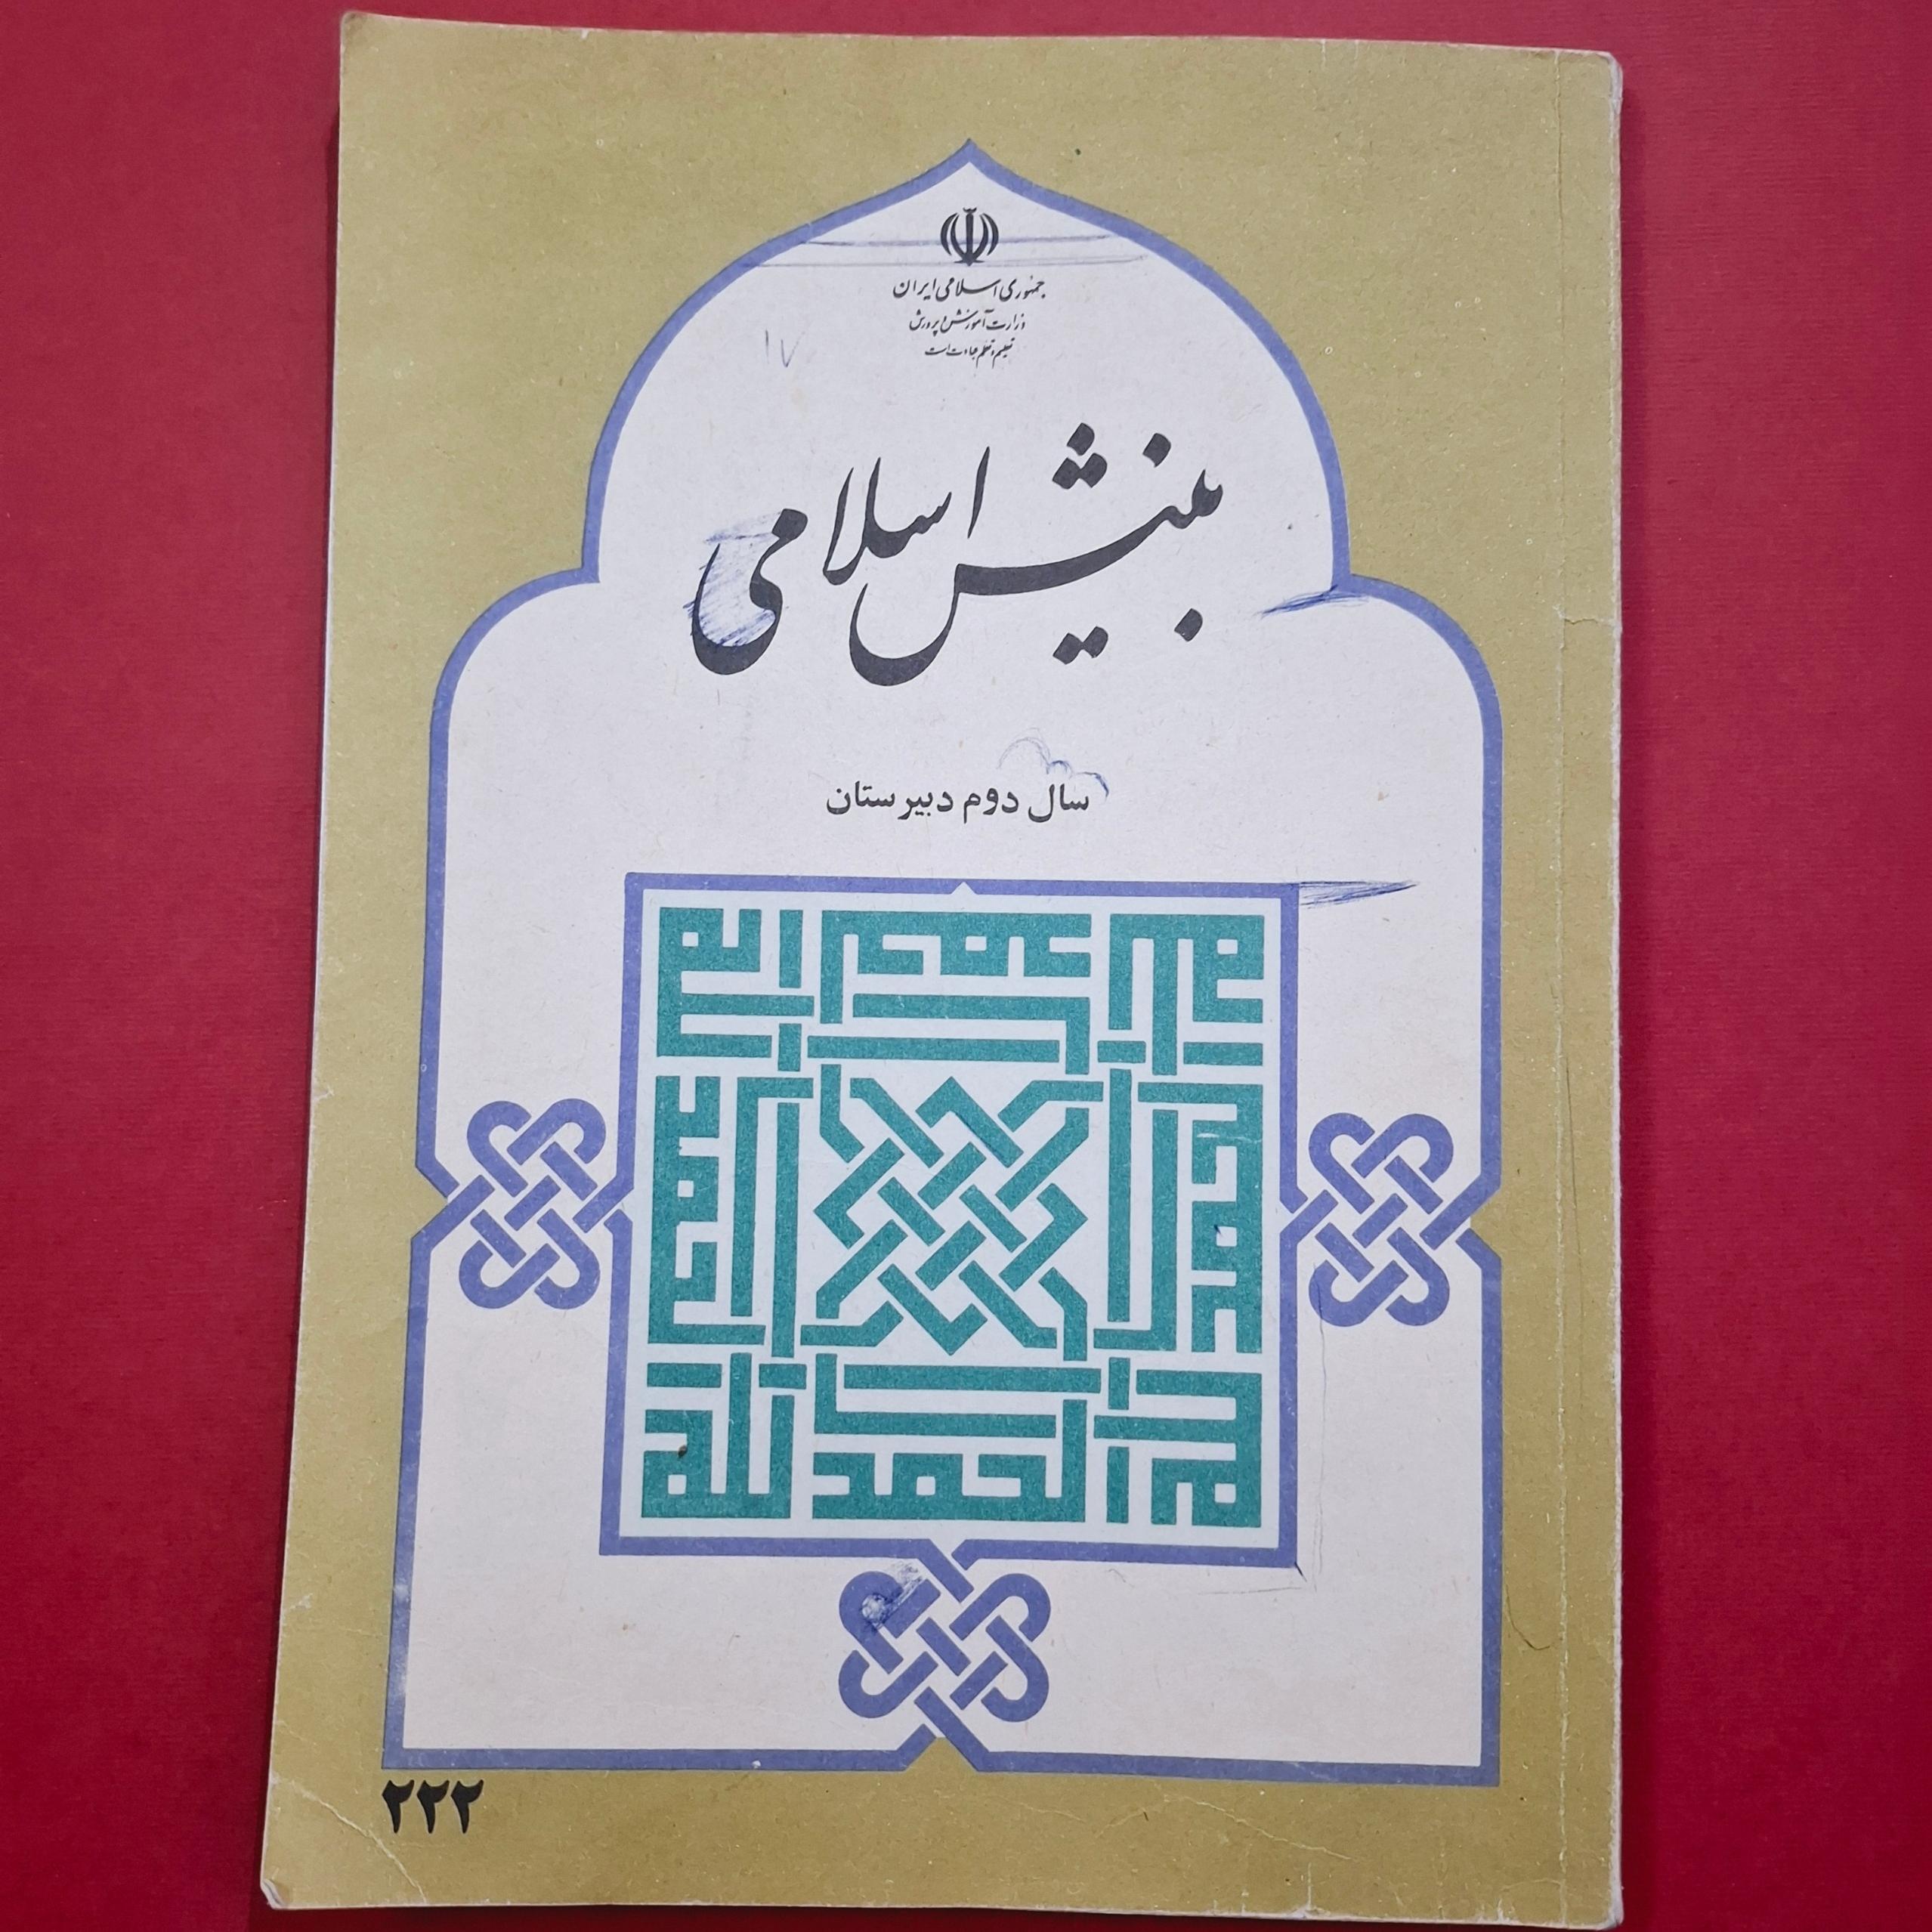 جمهوری اسلامی ایران
وزارت آموزش و پرورش
تعلیم و تعلم عبادت است
۱۷
بینش اسلامی
سال دوم دبیرستان
الحمد لله
۲۲۲